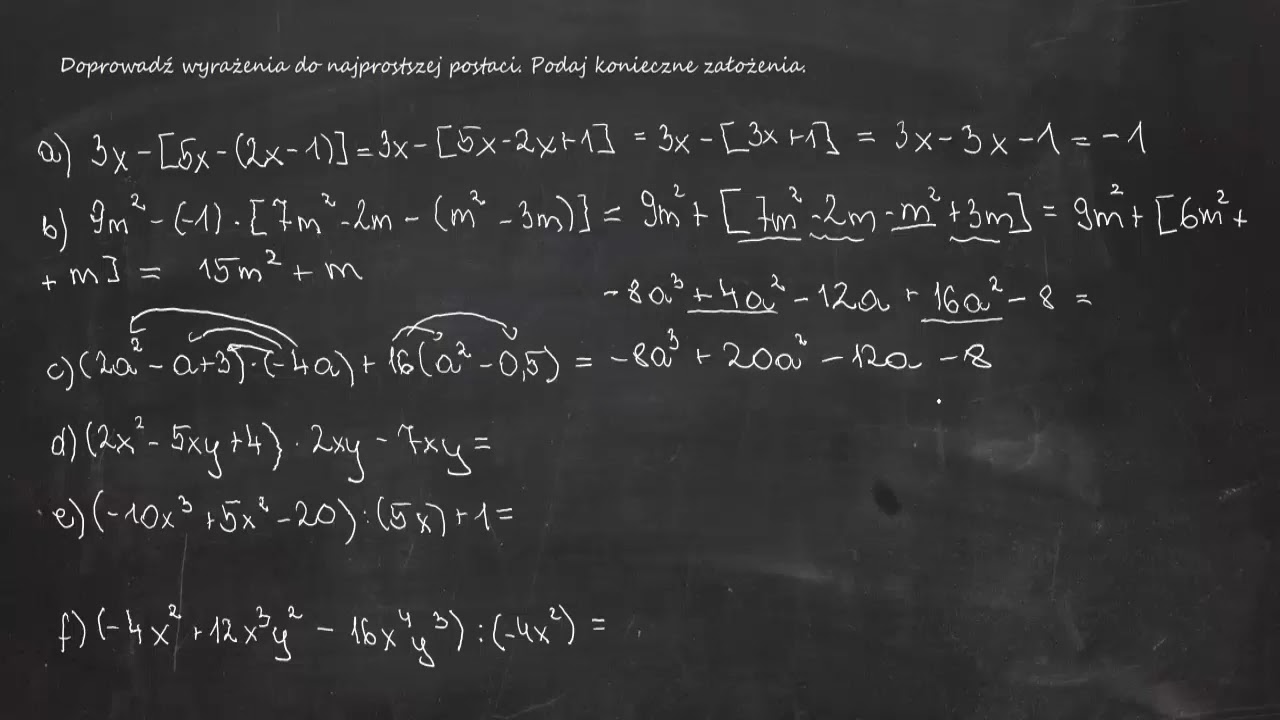 Doprowadź wyrażenia do najprostszej postaci. Podaj konieczne założenia.
a) 3x - [5x - (2x - 1)] = 3x - [5x - 2x + 1] = 3x - [3x + 1] = 3x - 3x - 1 = -1
b) 9m² - (-1) · [7m² - 2m - (m² - 3m)] = 9m² + [7m² - 2m - m² + 3m] = 9m² + [6m² +
+ m] = 15m² + m
-8a³ + 4a² - 12a + 16a² - 8 =
c) (2a² - a + 3) · (-4a) + 16(a² - 0,5) = -8a³ + 20a² - 12a - 8
d) (2x² - 5xy + 4) · 2xy - 7xy =
e) (-10x³ + 5x² - 20) : (5x) + 1 =
f) (-4x² + 12x³y² - 16x⁴y³) : (-4x²) =